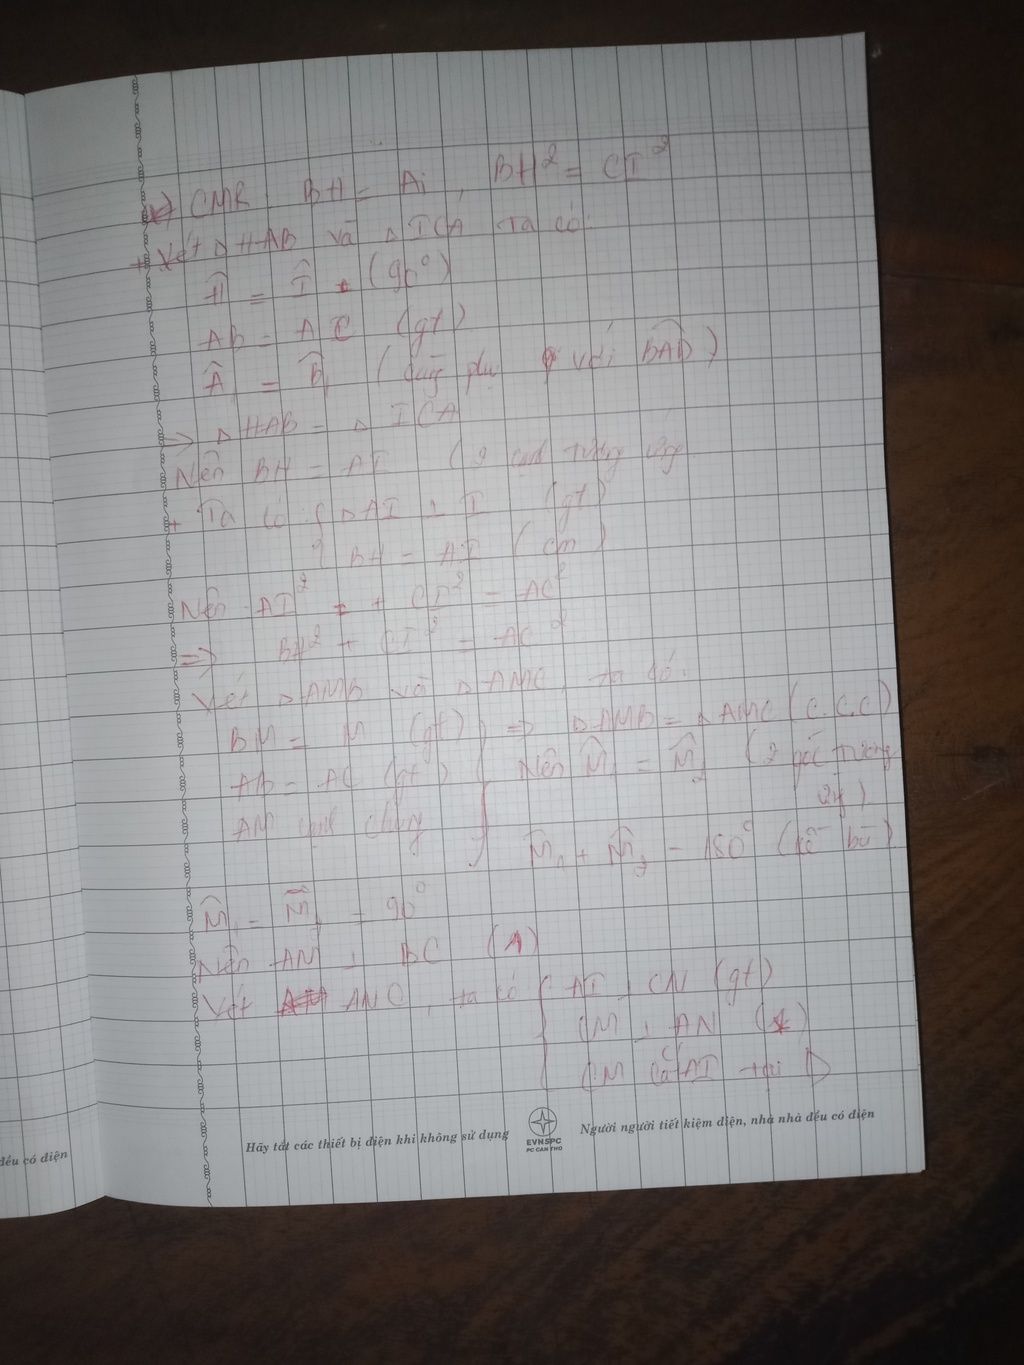 CMR BH = Ai, BH² = CI²
+ Xét △HAB và △ICA ta có:
Ĥ = Î = (90°)
AB = AC (gt)
Â₁ = B̂₁ (cùng phụ với BAD)
=> △HAB = △ICA
Nên BH = AI (2 cạnh tương ứng
+ Ta có { △AI ⊥ I (gt)
{ BH = AI (cm)
Nên AI² + CI² = AC²
=> BH² + CI² = AC²
Xét △AMB và △AMC, ta có:
BM = M (gt) } => △AMB = △AMC (c.c.c)
AB = AC (gt) Nên M̂₁ = M̂₂ (2 góc tương
AM cạnh chung ứ)
M̂₁ + M̂₂ = 180° (kề bù)
M̂₁ = M̂₂ = 90°
Nên AN ⊥ BC (1)
Xét ANC, ta có { AI ⊥ CN (gt)
CM ⊥ AN (1)
CM cắt AI tại D
đều có điện
Hãy tắt các thiết bị điện khi không sử dụng
EVNSPC
PC CAN THO
Người người tiết kiệm điện, nhà nhà đều có điện